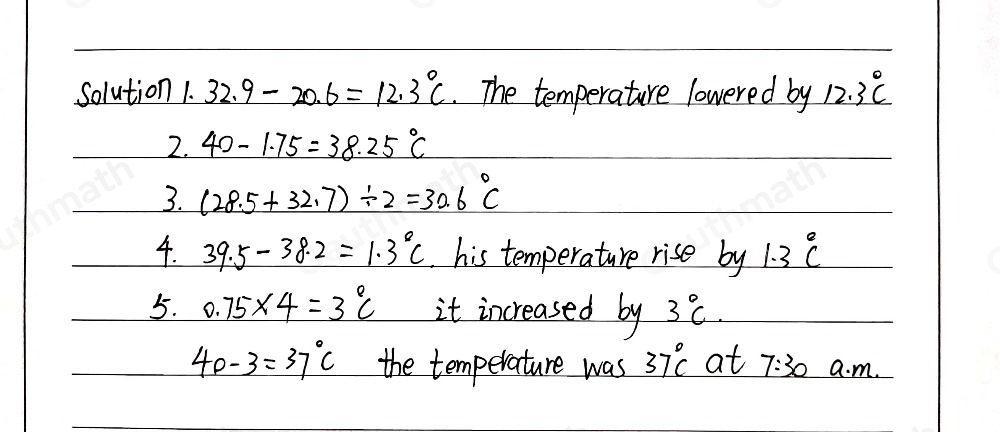 Solution 1. 32.9 - 20.6 = 12.3°C. The temperature lowered by 12.3°C
2. 40 - 1.75 = 38.25 °C
3. (28.5 + 32.7) ÷ 2 = 30.6 °C
4. 39.5 - 38.2 = 1.3°C. his temperature rise by 1.3 °C
5. 0.75 × 4 = 3 °C it increased by 3°C.
40 - 3 = 37°C the temperature was 37°C at 7:30 a.m.